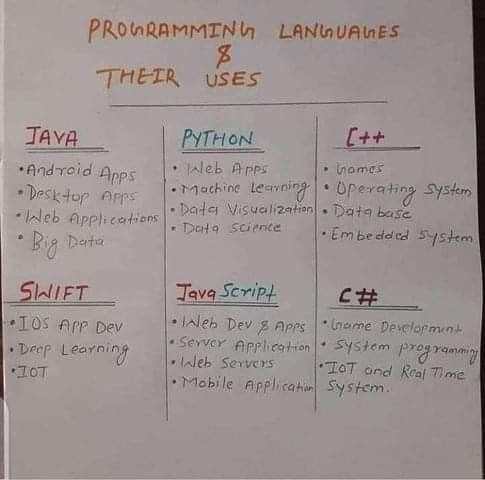 PROGRAMMING LANGUAGES
&
THEIR USES
JAVA
• Android Apps
• Desktop Apps
• Web Applications
• Big Data
PYTHON
• Web Apps
• Machine Learning
• Data Visualization
• Data Science
C++
• Games
• Operating System
• Data base
• Embedded System
SWIFT
• IOS App Dev
• Deep Learning
• IOT
JavaScript
• Web Dev & Apps
• Server Application
• Web Servers
• Mobile Application
C#
• Game Development
• System programming
• IoT and Real Time
System.